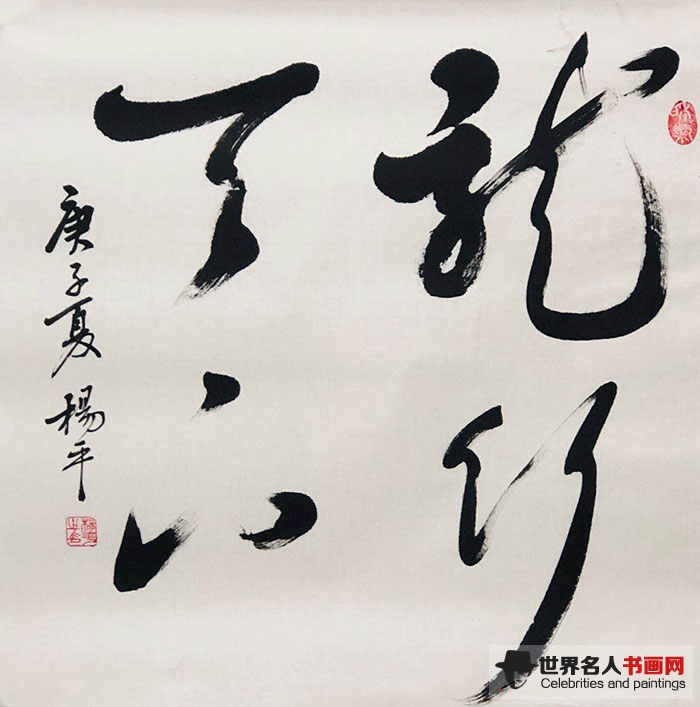 龍行
天下
庚子夏 楊平
世界名人书画网
Celebrities and paintings